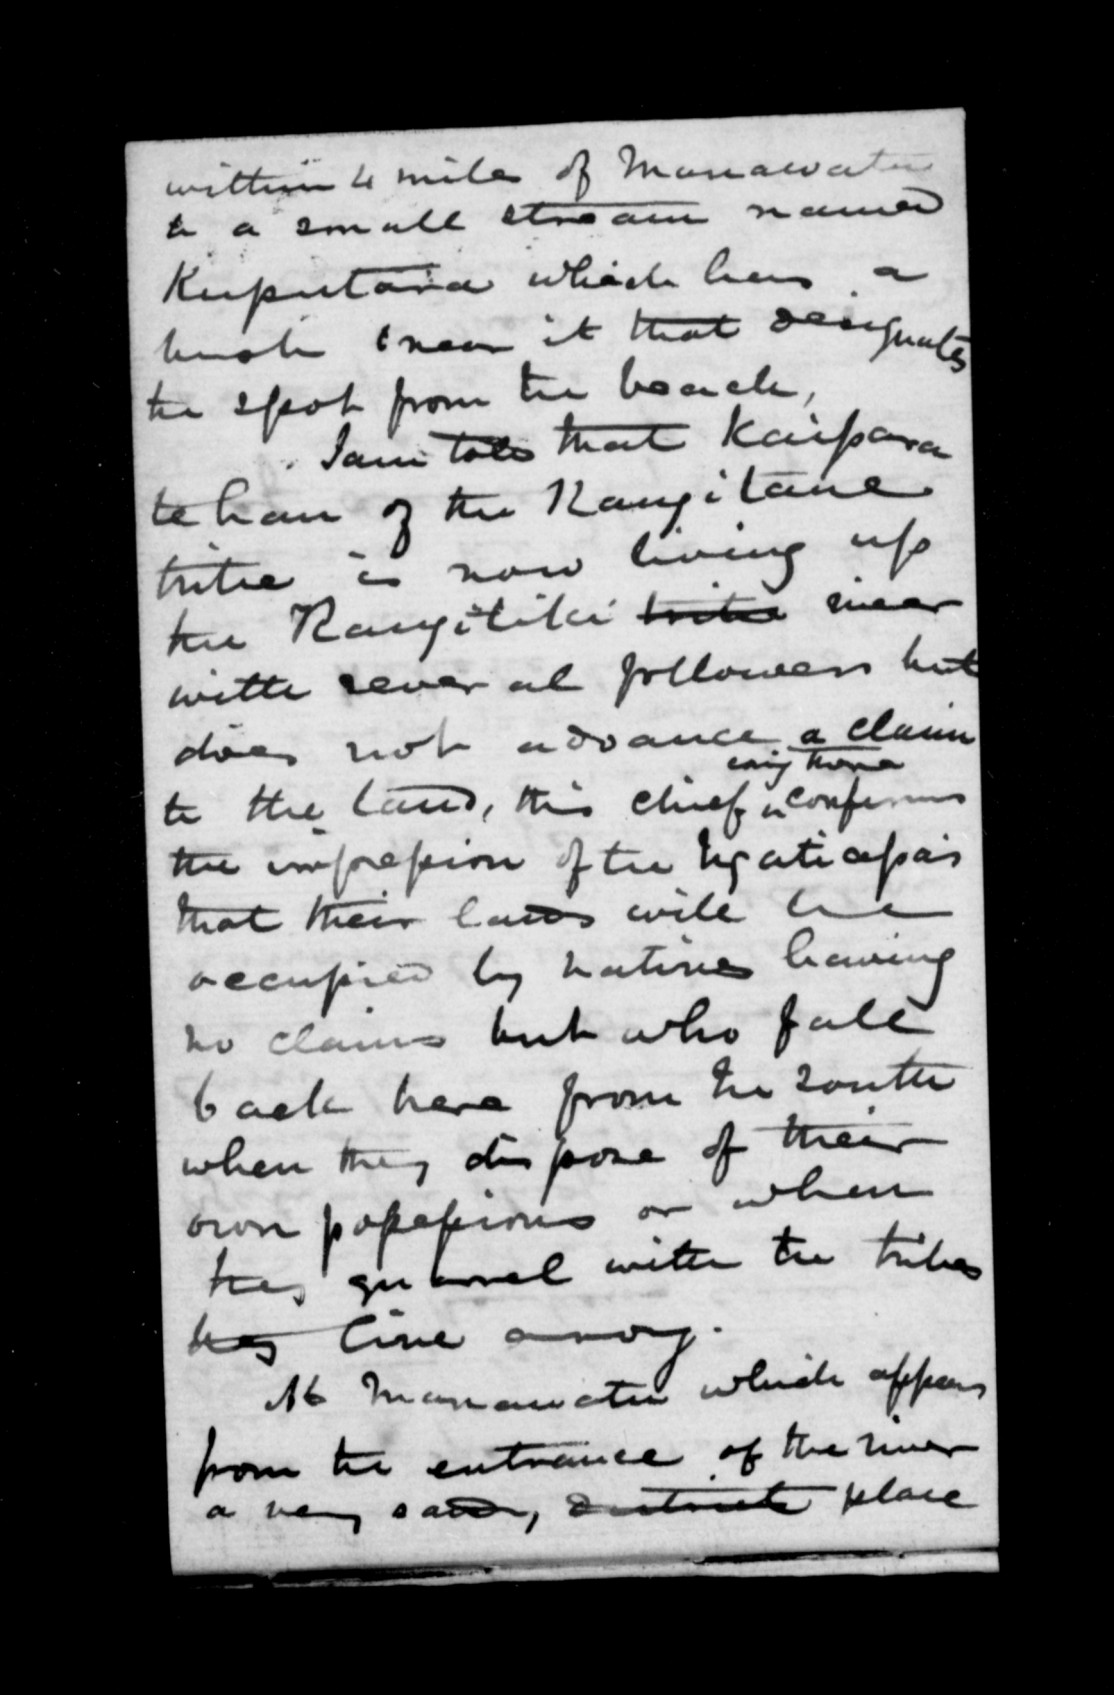 within 4 miles of Manawatu
to a small stream named
Kuputara which has a
bush near it that designates
the spot from the beach,
I am told that Kaipara
te hau of the Rangitane
tribe is now living up
the Rangitiki tribe river
with several followers but
does not advance a claim
living there
to the land, this chief confirms
the impression of the Ngatiapa's
that their lands will be
occupied by natives having
no claims but who fall
back here from the south
when they dispose of their
own possessions or when
they quarrel with the tribes
they live among.
At Manawatu which appears
from the entrance of the river
a very sandy, district place